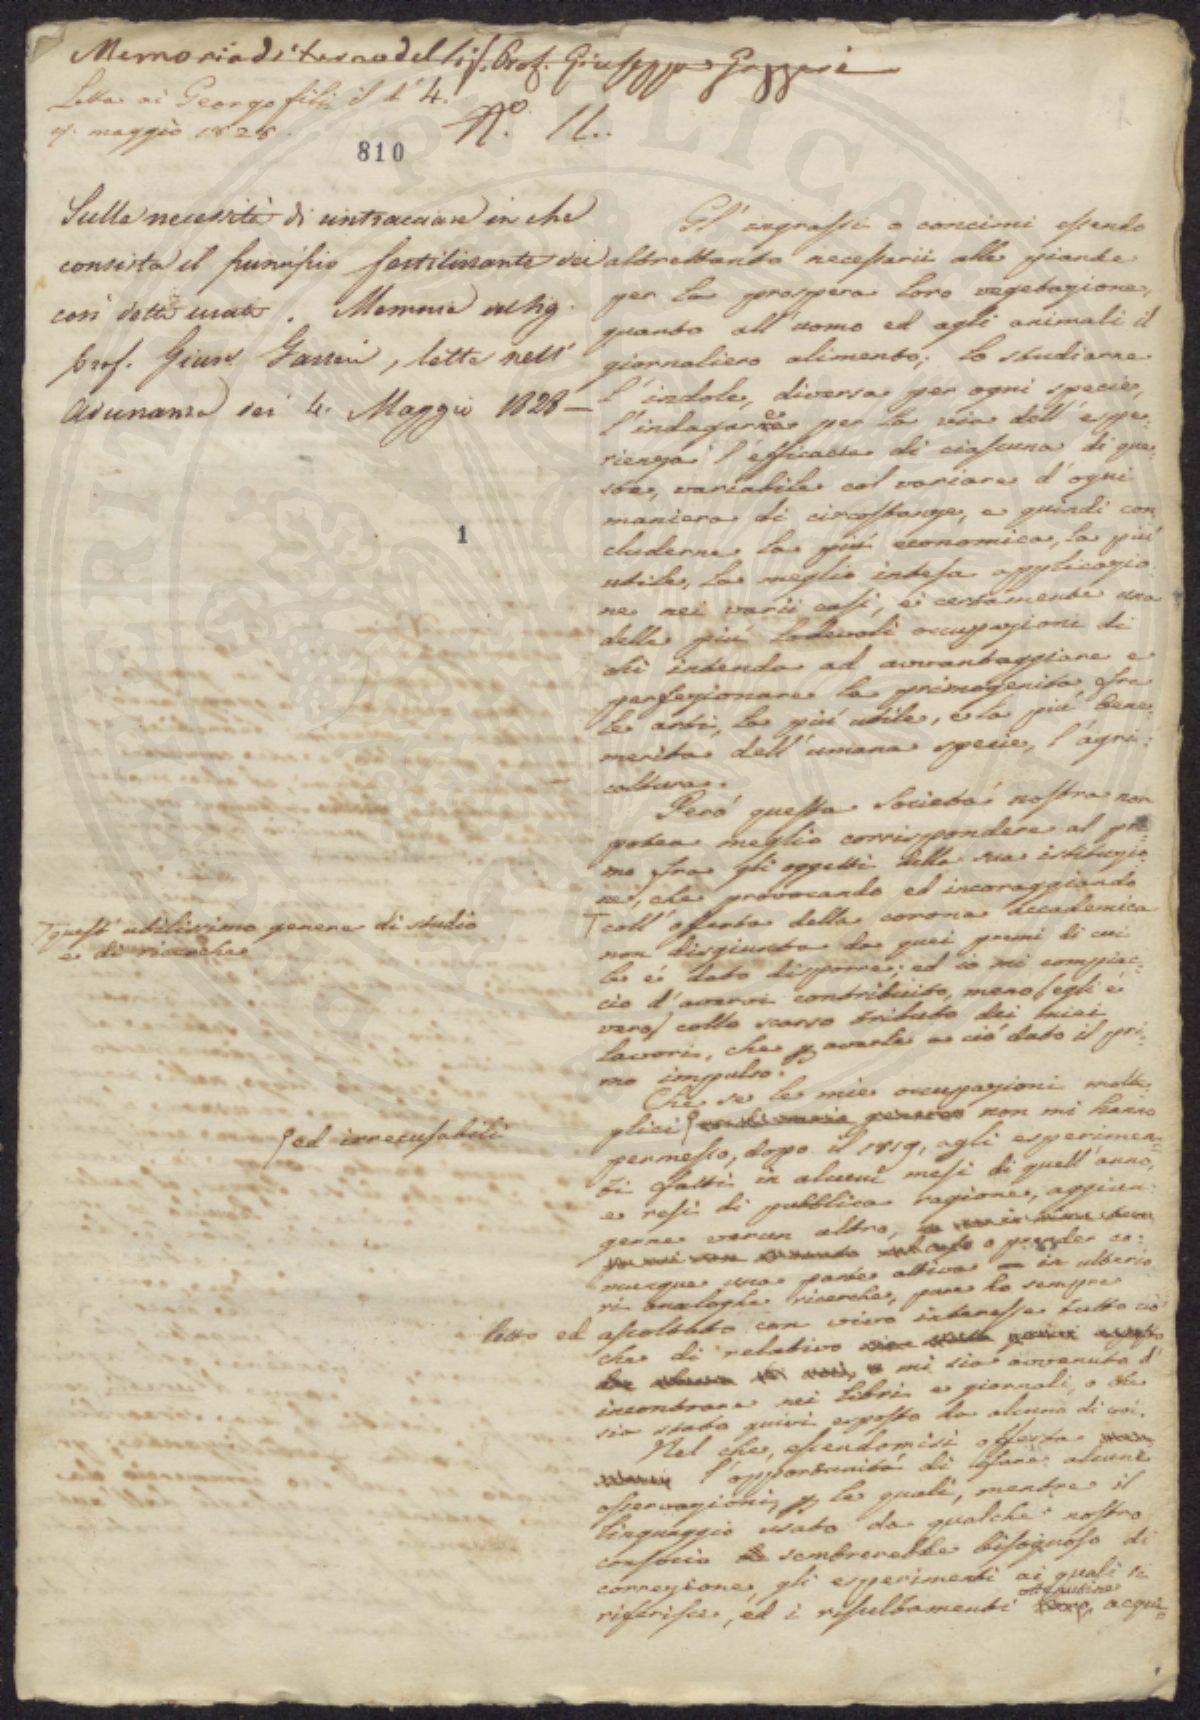 Memoria di turno del Sig. Prof. Giuseppe Gazzeri
Letta ai Georgofili il dì 4.
maggio 1828.
N.° 11.
810
Sulla necessità di rintracciare in che
consista il principio fertilizzante dei
così detti
Memoria del Sig.
Prof. Gius. Gazzeri, letta nell'
Adunanza dei 4. Maggio 1828 —
1
Gl'ingrassi o concimi essendo
altrettanto necessarii alle piante
per la prospera loro vegetazione,
quanto all'uomo ed agli animali il
giornaliero alimento; lo studiarne
l'indole, diversa per ogni specie,
l'indagarne per la via dell'espe-
rienza l'efficacia di ciascuna di que-
ste, variabile col variare d'ogni
maniera di circostanze, e quindi con
cluderne la più economica, la più
utile, la meglio intesa applicazio
ne nei varii casi, è certamente una
delle più lodevoli occupazioni di
chi intenda ad avvantaggiare e
perfezionare la primogenita fra
le arti, la più utile, e la più bene-
merita dell'umana specie, l'agri-
coltura.
Però questa Società nostra non
potea meglio corrispondere al pri-
mo fra gli oggetti della sua istituzio
ne, che provocando ed incoraggiando
T quest'utilissimo genere di studio
e di ricerche
T coll'offerta della corona accademica
non disgiunta da quei premi di cui
le è dato disporre; ed io mi compiac-
cio d'avervi contribuito, meno (egli è
vero) collo scarso tributo dei miei
lavori, che p averle a ciò dato il pri-
mo impulso.
Che se le mie occupazioni molte
plici non mi hanno
ed irrecusabili
permesso, dopo il 1819, agli esperimen-
ti fatti in alcuni mesi di quell'anno,
e resi di pubblica ragione, aggiun-
gerne verun altro, o prender co-
munque una parte attiva in ulterio
ri analoghe ricerche, pure ho sempre
letto ed ascoltato con vivo interesse tutto ciò
che di relativo
mi sia avvenuto d'
incontrare nei libri e giornali, o che
sia stato quivi esposto da alcuno di voi.
Nel che, essendomisi offerta
l'opportunità di fare alcune
osservazioni, p le quali, mentre il
linguaggio usato da qualche nostro
consocio sembrerebbe bisognoso di
correzione, gli esperimenti ai quali si
riferisce, ed i resultamenti ottenutine acqui-